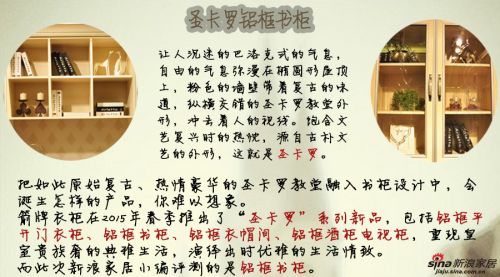 圣卡罗铝框书柜
让人沉迷的巴洛克式的气息，
自由的气息弥漫在椭圆形屋顶
上，粉色的墙壁带着复古的味
道，纵横交错的圣卡罗教堂外
形，冲击着人的视线。饱含文
艺复兴时的热忱，源自古朴文
艺的外形，这就是圣卡罗。
把如此原始复古、热情豪华的圣卡罗教堂融入书柜设计中，会
诞生怎样的产品，你难以想象。
箭牌衣柜在2015年春季推出了“圣卡罗”系列新品，包括铝框平
开门衣柜、铝框书柜、铝框衣帽间、铝框酒柜电视柜，重现皇
室贵族奢的典雅生活，演绎出时优雅的生活情致。
而此次新浪家居小编评测的是铝框书柜。
sina新浪家居
jiaju.sina.com.cn